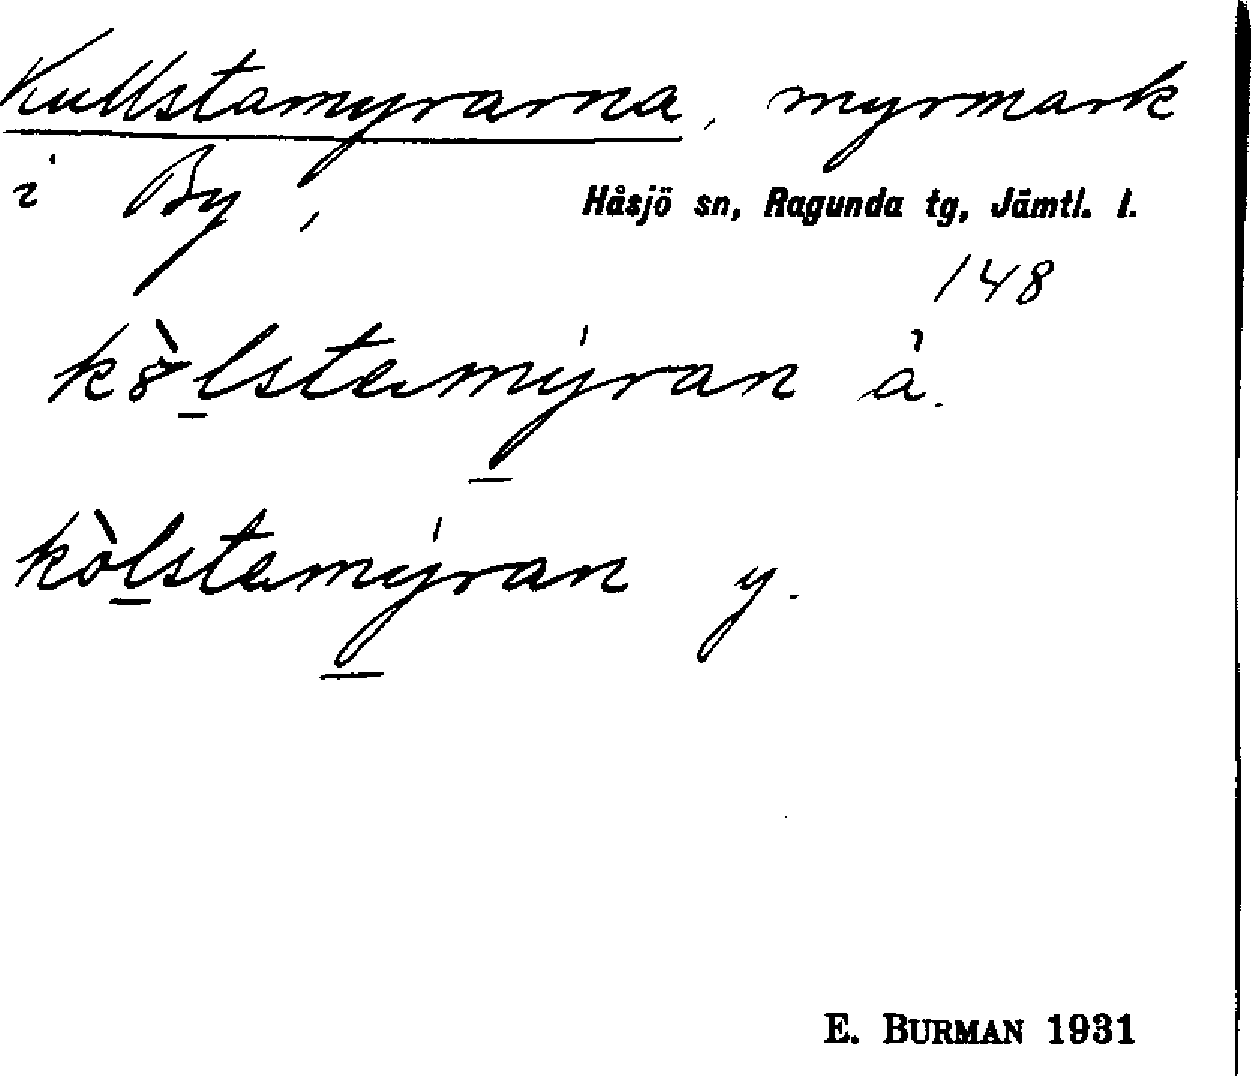 Kullstamyrarna, myrmark
i By,
Håsjö sn, Ragunda tg, Jämtl. l.
148
kö̀lstamýran ä.
kòlstamýran y.
E. BURMAN 1931